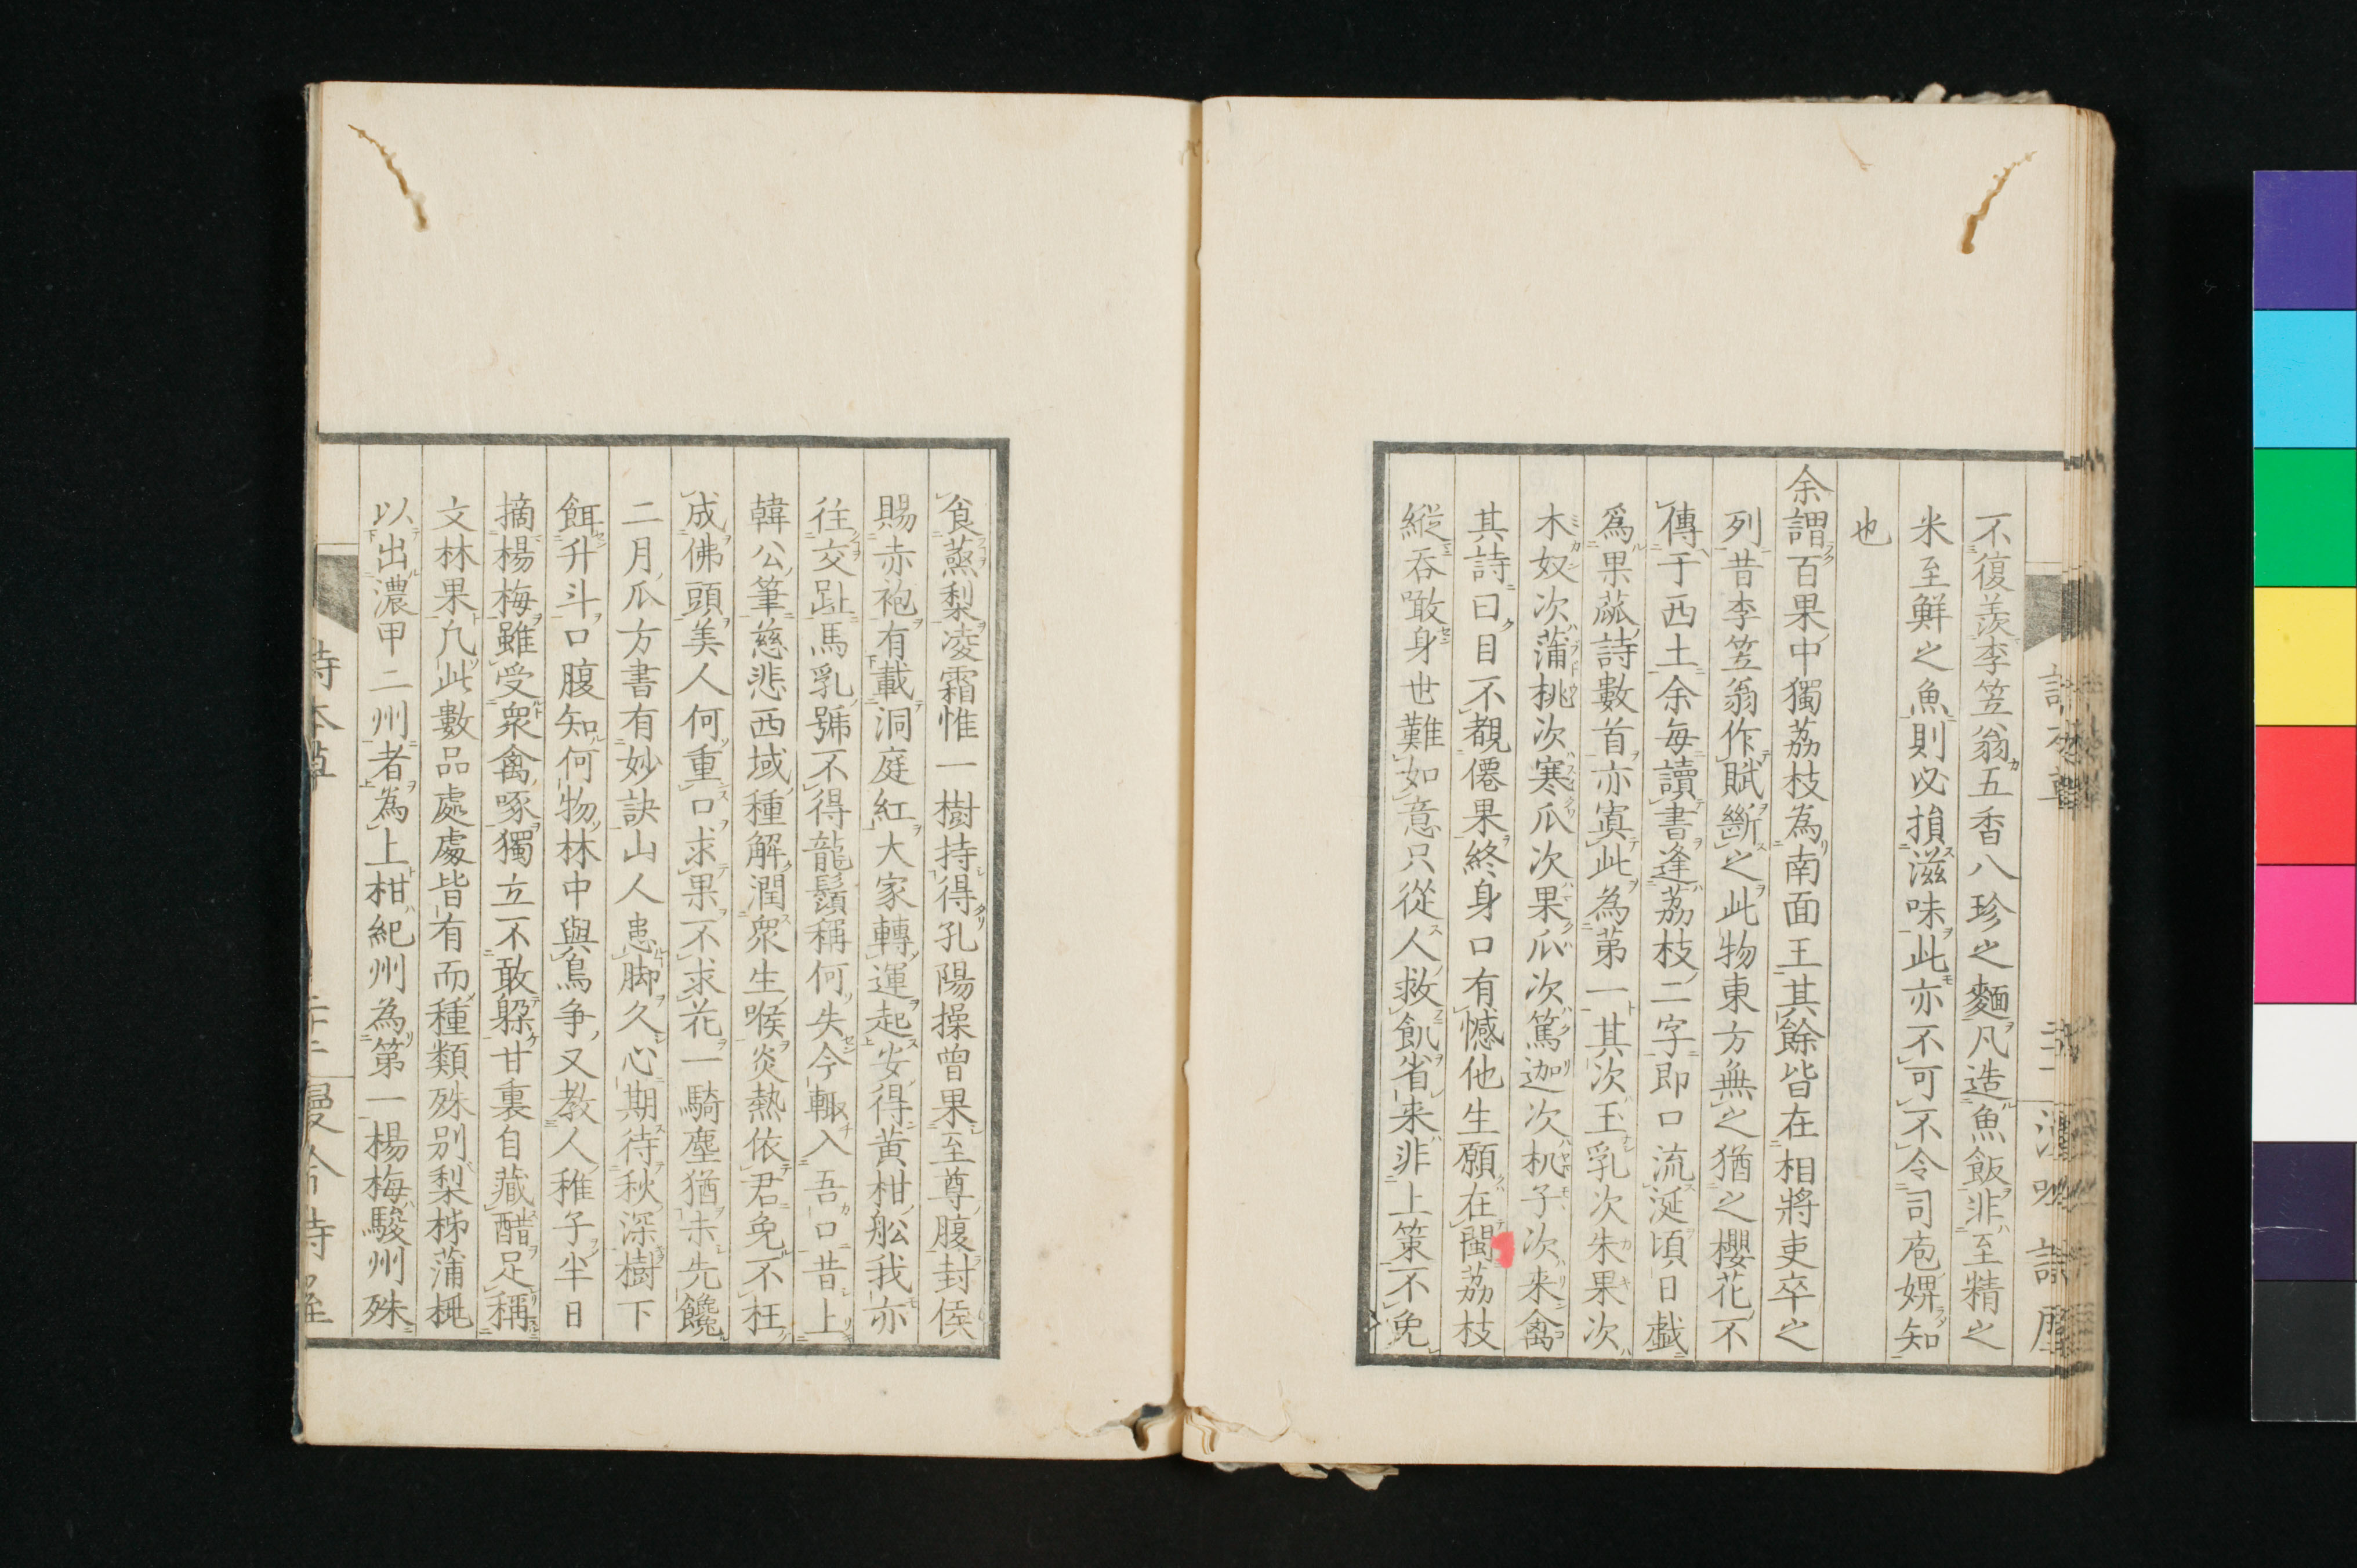 不復羨李笠翁五香八珍之麵凡造魚飯非至精之
米至鮮之魚則必損滋味此亦不可不令司庖婢知
也
余謂百果中獨荔枝為南面王其餘皆在相將吏卒之
列昔李笠翁作賦斷之此物東方無之猶之櫻花不
傳于西土余每讀書逢荔枝二字即口流涎頃日戯
爲果蓏詩數首亦寘此為苐一其次玉乳次朱果次
木奴次蒲桃次寒瓜次果瓜次篤迦次机子次来禽
其詩曰目不覩僊果終身口有憾他生願在閩荔枝
縦吞噉身世難如意只從人救飢省来非上策不免
食蒸梨凌霜惟一樹持得孔陽操曾果至尊腹封侯
賜赤袍有載洞庭紅大家轉運起安得黄柑舩我亦
往交趾馬乳號不得龍鬚稱何失今輙入吾口昔上
韓公筆慈悲西域種解潤衆生喉炎熱依君免不枉
成佛頭美人何重口求果不求花一騎塵猶未先饞
二月瓜方書有妙訣山人患脚久心期待秋深樹下
餌升斗口腹知何物林中與鳥争又教人稚子半日
摘楊梅雖受衆禽啄獨立不敢躱甘裏自藏醋足稱
文林果凢此數品處處皆有而種類殊別梨柹蒲桃
以出濃甲二州者為上柑紀州為第一楊梅駿州殊